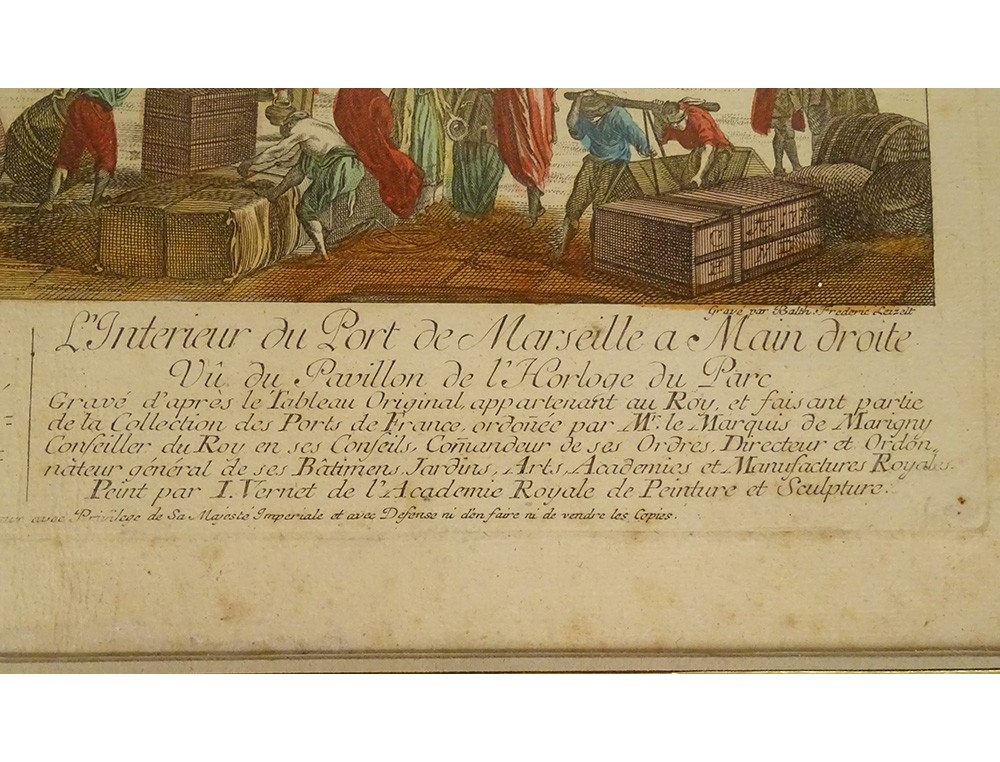 Gravé par Balth. Frederic Leizelt
L'Interieur du Port de Marseille a Main droite
Vû du Pavillon de l'Horloge du Parc
Gravé d'après le Tableau Original, appartenant au Roy, et faisant partie
de la Collection des Ports de France, ordoñée par Mr. le Marquis de Marigny
Conseiller du Roy en ses Conseils, Com̃andeur de ses Ordres, Directeur et Ordoñ,
nâteur général de ses Bâtimens, Jardins, Arts, Academies et Manufactures Royales.
Peint par I. Vernet de l'Academie Royale de Peinture et Sculpture.
avec Privilege de Sa Majeste Imperiale et avec Defense ni d'en faire ni de vendre les Copies.